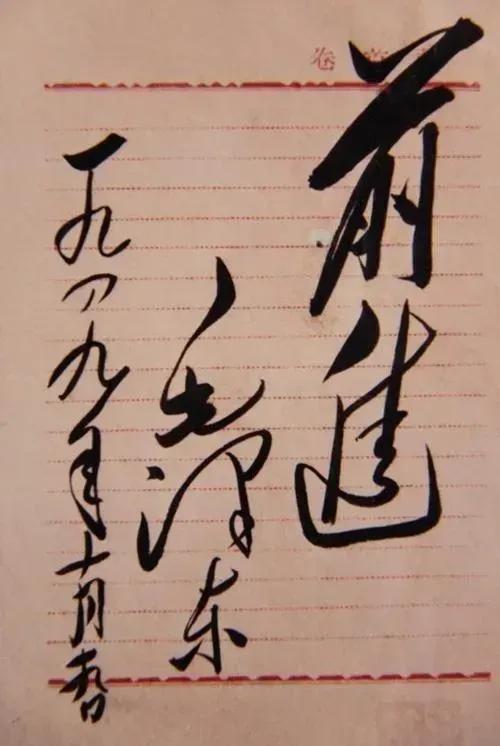 卷
前進
毛泽东
一九四九年十月日